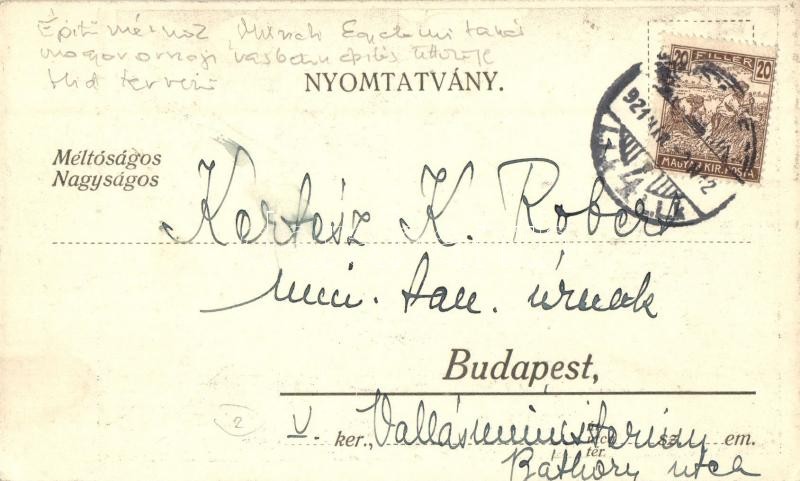 Építő mérnök Műszaki Egyetemi tanár
magyarországi vasbeton építés úttörője
Híd tervező
NYOMTATVÁNY.
20 FILLÉR 20
MAGYAR KIR. POSTA
921
Méltóságos
Nagyságos
Kertész K. Robert
min. tan. úrnak
Budapest,
V. ker., Vallásminisztérium utca sz. em.
tér.
Báthory utca
2